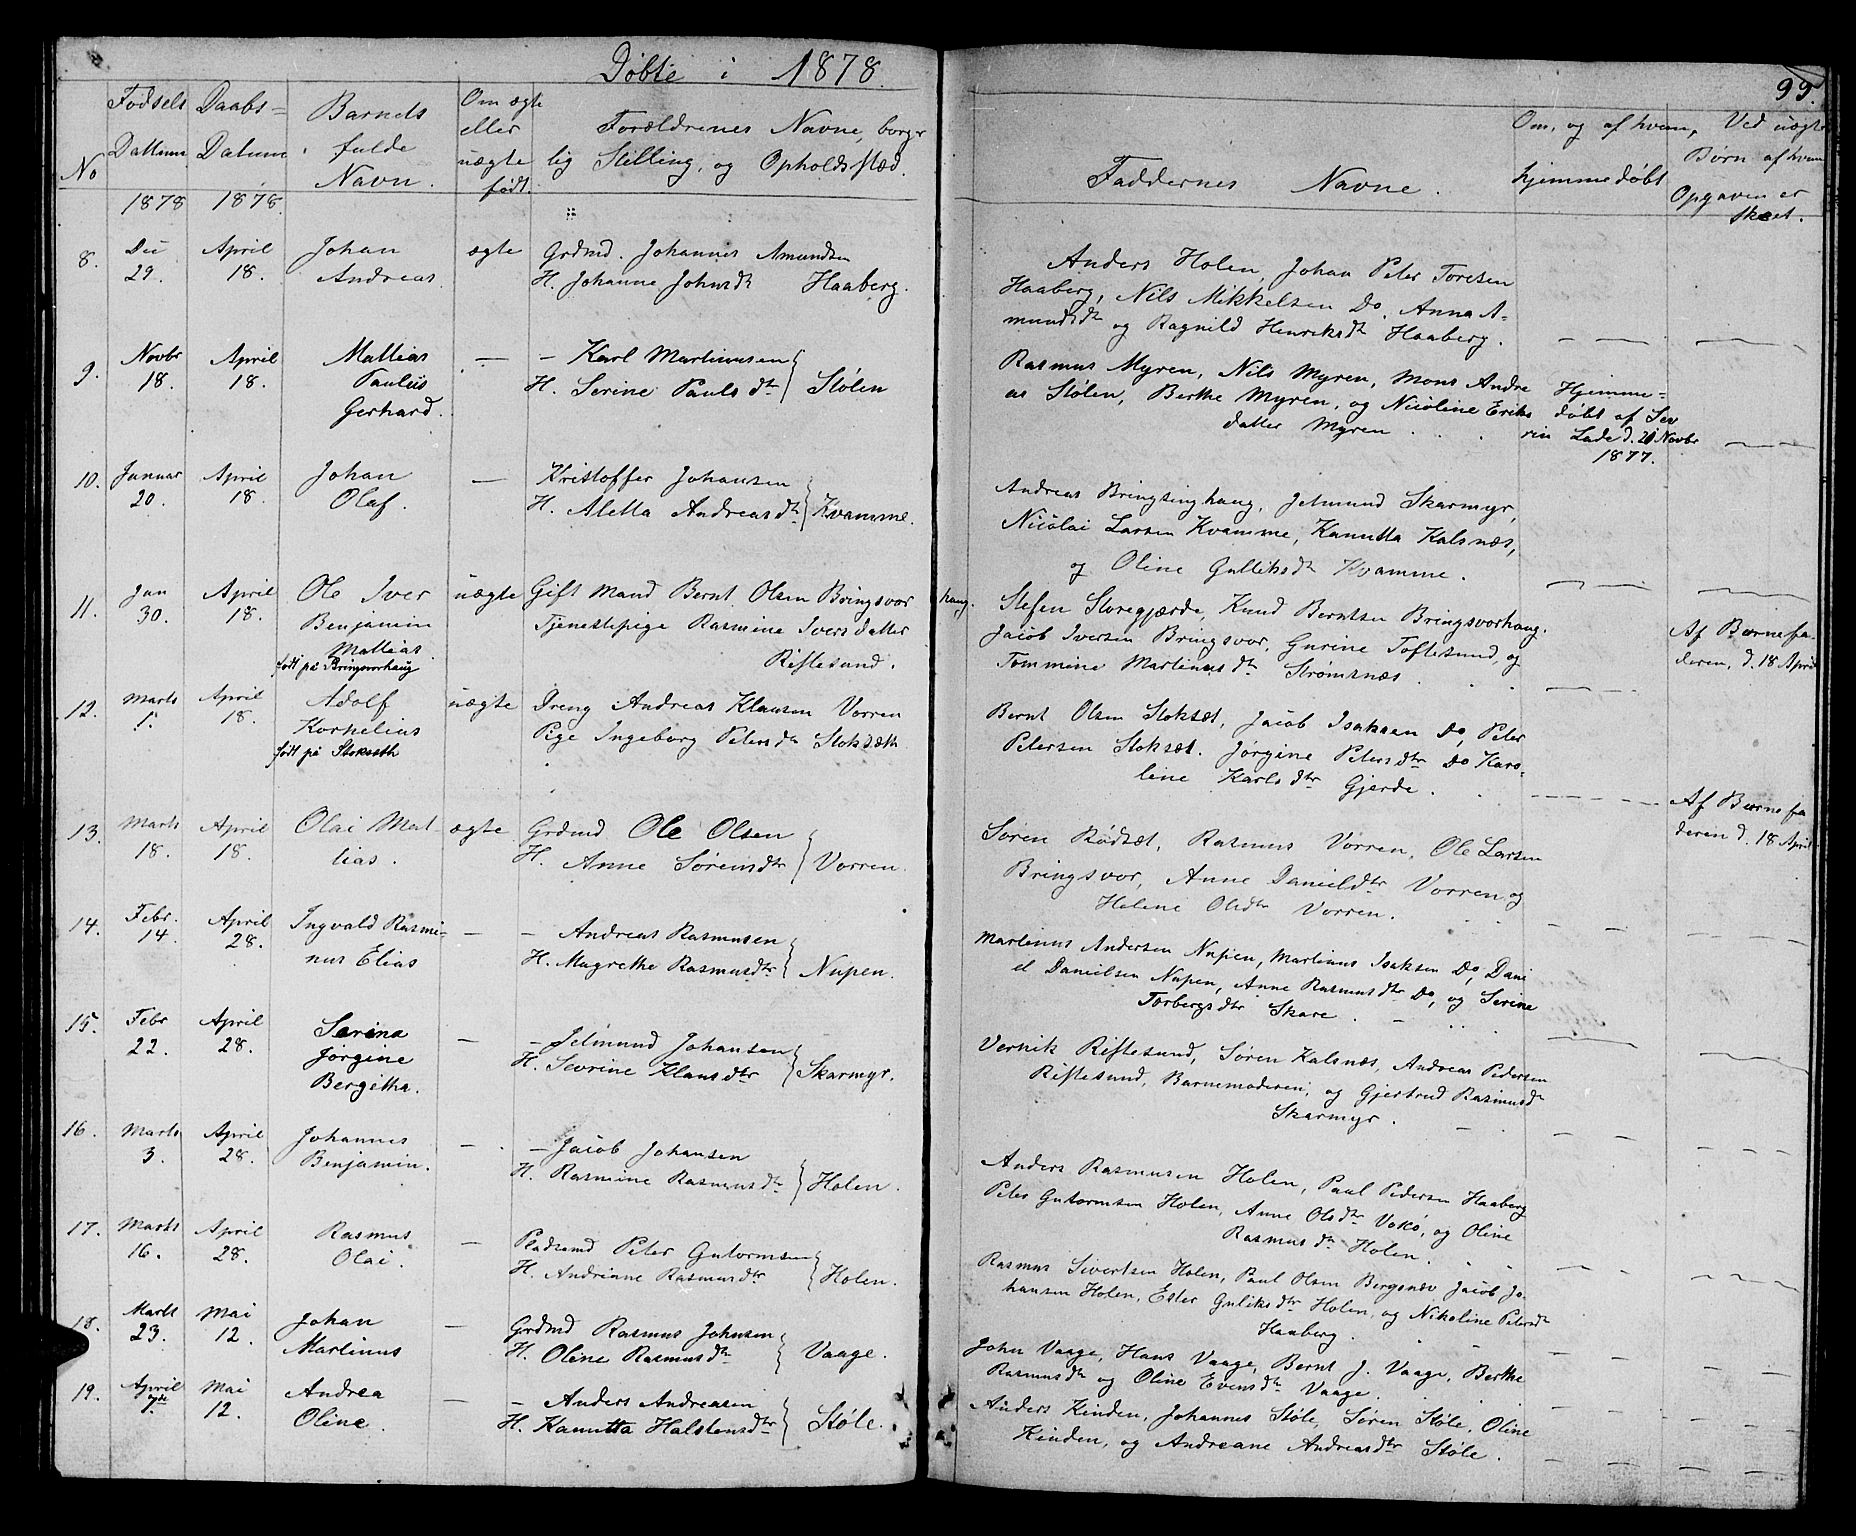 Døbte i 1878.
99.
No
Fødsels Dattum
Daabs- Datum
Barnets fulde Navn.
Om ægte eller uægte født.
Forældrenes Navne, borger-
lig Stilling, og Opholdssted.
Faddernes Navne.
Om, og af hvem, hjemmedøbt
Ved uægte Børn af hvem Opgaven er skeet.
1878 1878.
8. Dec 29. April 18. Johan Andreas. ægte
Grdmd. Johannes Amundsen
H. Johanne Johnsdt Haaberg.
Anders Holen, Johan Peter Toresen
Haaberg, Nils Mikkelsen Do, Anna A-
mundsdt og Ragnild Henriksdt Haaberg.
9. Novbr 18. April 18. Mattias Paulus Gerhard. —
— Karl Martinusen
H. Serine Paulsdt Stølen
Rasmus Myren, Nils Myren, Mons Andre
as Stølen, Berthe Myren, og Nicoline Eriks
datter Myren
Hjemme-
døbt af Sev
rin Lade d. 21 Novbr
1877.
10. Januar 20. April 18. Johan Olaf. —
Kristoffer Johansen
H. Aletta Andreasdt Kvamme.
Andreas Bringsinghaug, Jetmund Skarmyr,
Nicolai Larsen Kvamme, Kanutta Kalsnæs,
og Oline Gulliksdt Kvamme.
11. Jan 30. April 18. Ole Iver Benjamin Mattias. født på Bringsvorhaug uægte
Gift Mand Bernt Olsen Bringsvor haug.
Tjenestepige Rasmine Iversdatter
Riftesund.
Stefen Storegjærde, Knud Berntsen Bringsvorhaug.
Jacob Iversen Bringsvor, Gurine Toftesund, og
Tommine Martinusdt Strømsnæs.
Af Barnefa-
deren, d. 18 April
12. Marts 1. April 18. Adolf Kornelius født på Stokseth uægte
Dreng Andreas Klausen Vorren
Pige Ingeborg Petersdt Stoksæth
Bernt Olsen Stoksæt, Jacob Isaksen Do, Peter
Petersen Stoksæt. Jørgine Petersdtr Do Karo-
line Karlsdtr Gjerde.
Af Barnefa
deren d. 18 April
13. Marts 18. April 18. Olai Mat- tias. ægte
Grdmd Ole Olsen
H. Anne Sørensdtr Vorren.
Søren Rødsæt, Rasmus Vorren, Ole Larsen
Bringsvor, Anne Danieldtr Vorren og
Helene Olsdtr Vorren.
14. Febr. 14. April 28. Ingvald Rasmi- nus Elias —
— Andreas Rasmusen
H. Magrethe Rasmusdtr Nupen.
Martinus Andersen Nupen, Martinus Isaksen Do, Dani
el Danielsen Nupen, Anne Rasmusdtr Do, og Serine
Torbergsdtr Skare.
15. Febr 22. April 28. Serina Jørgine Bergitha. —
— Jetmund Johansen
H. Sevrine Klausdtr Skarmyr.
Vernik Riftesund, Søren Kalsnæs, Andreas Pedersen
Riftesund, Barnemoderen, og Gjertrud Rasmusdt
Skarmyr.
16. Marts 3. April 28. Johannes Benjamin. —
— Jacob Johansen
H. Rasmine Rasmusdt Holen.
Anders Rasmusen Holen, Paul Pedersen Haaberg
Peter Gutormsen Holen, Anne Olsdtr Vokø, og Oline
Rasmusdt Holen.
17. Marts 16. April 28. Rasmus Olai. —
Pladsmd Peter Gutormsen
H. Andriane Rasmusdtr Holen.
Rasmus Sivertsen Holen, Paul Olsen Bergsnev Jacob Jo-
hansen Holen, Ester Guliksdtr Holen, og Nikoline Petersdt
Haaberg.
18. Marts 23. Mai 12. Johan Martinus —
Grdmd Rasmus Johnsen
H. Oline Rasmusdt Vaage.
John Vaage, Hans Vaage, Bernt J. Vaage, Berthe
Rasmusdt og Oline Evensdt Vaage.
19. April 7de Mai 12. Andrea Oline. —
— Anders Andreasen
H. Kanutta Halstensdt Støle.
Anders Kinden, Johannes Støle, Søren Støle, Oline
Kinden, og Andreane Andreasdtr Støle.